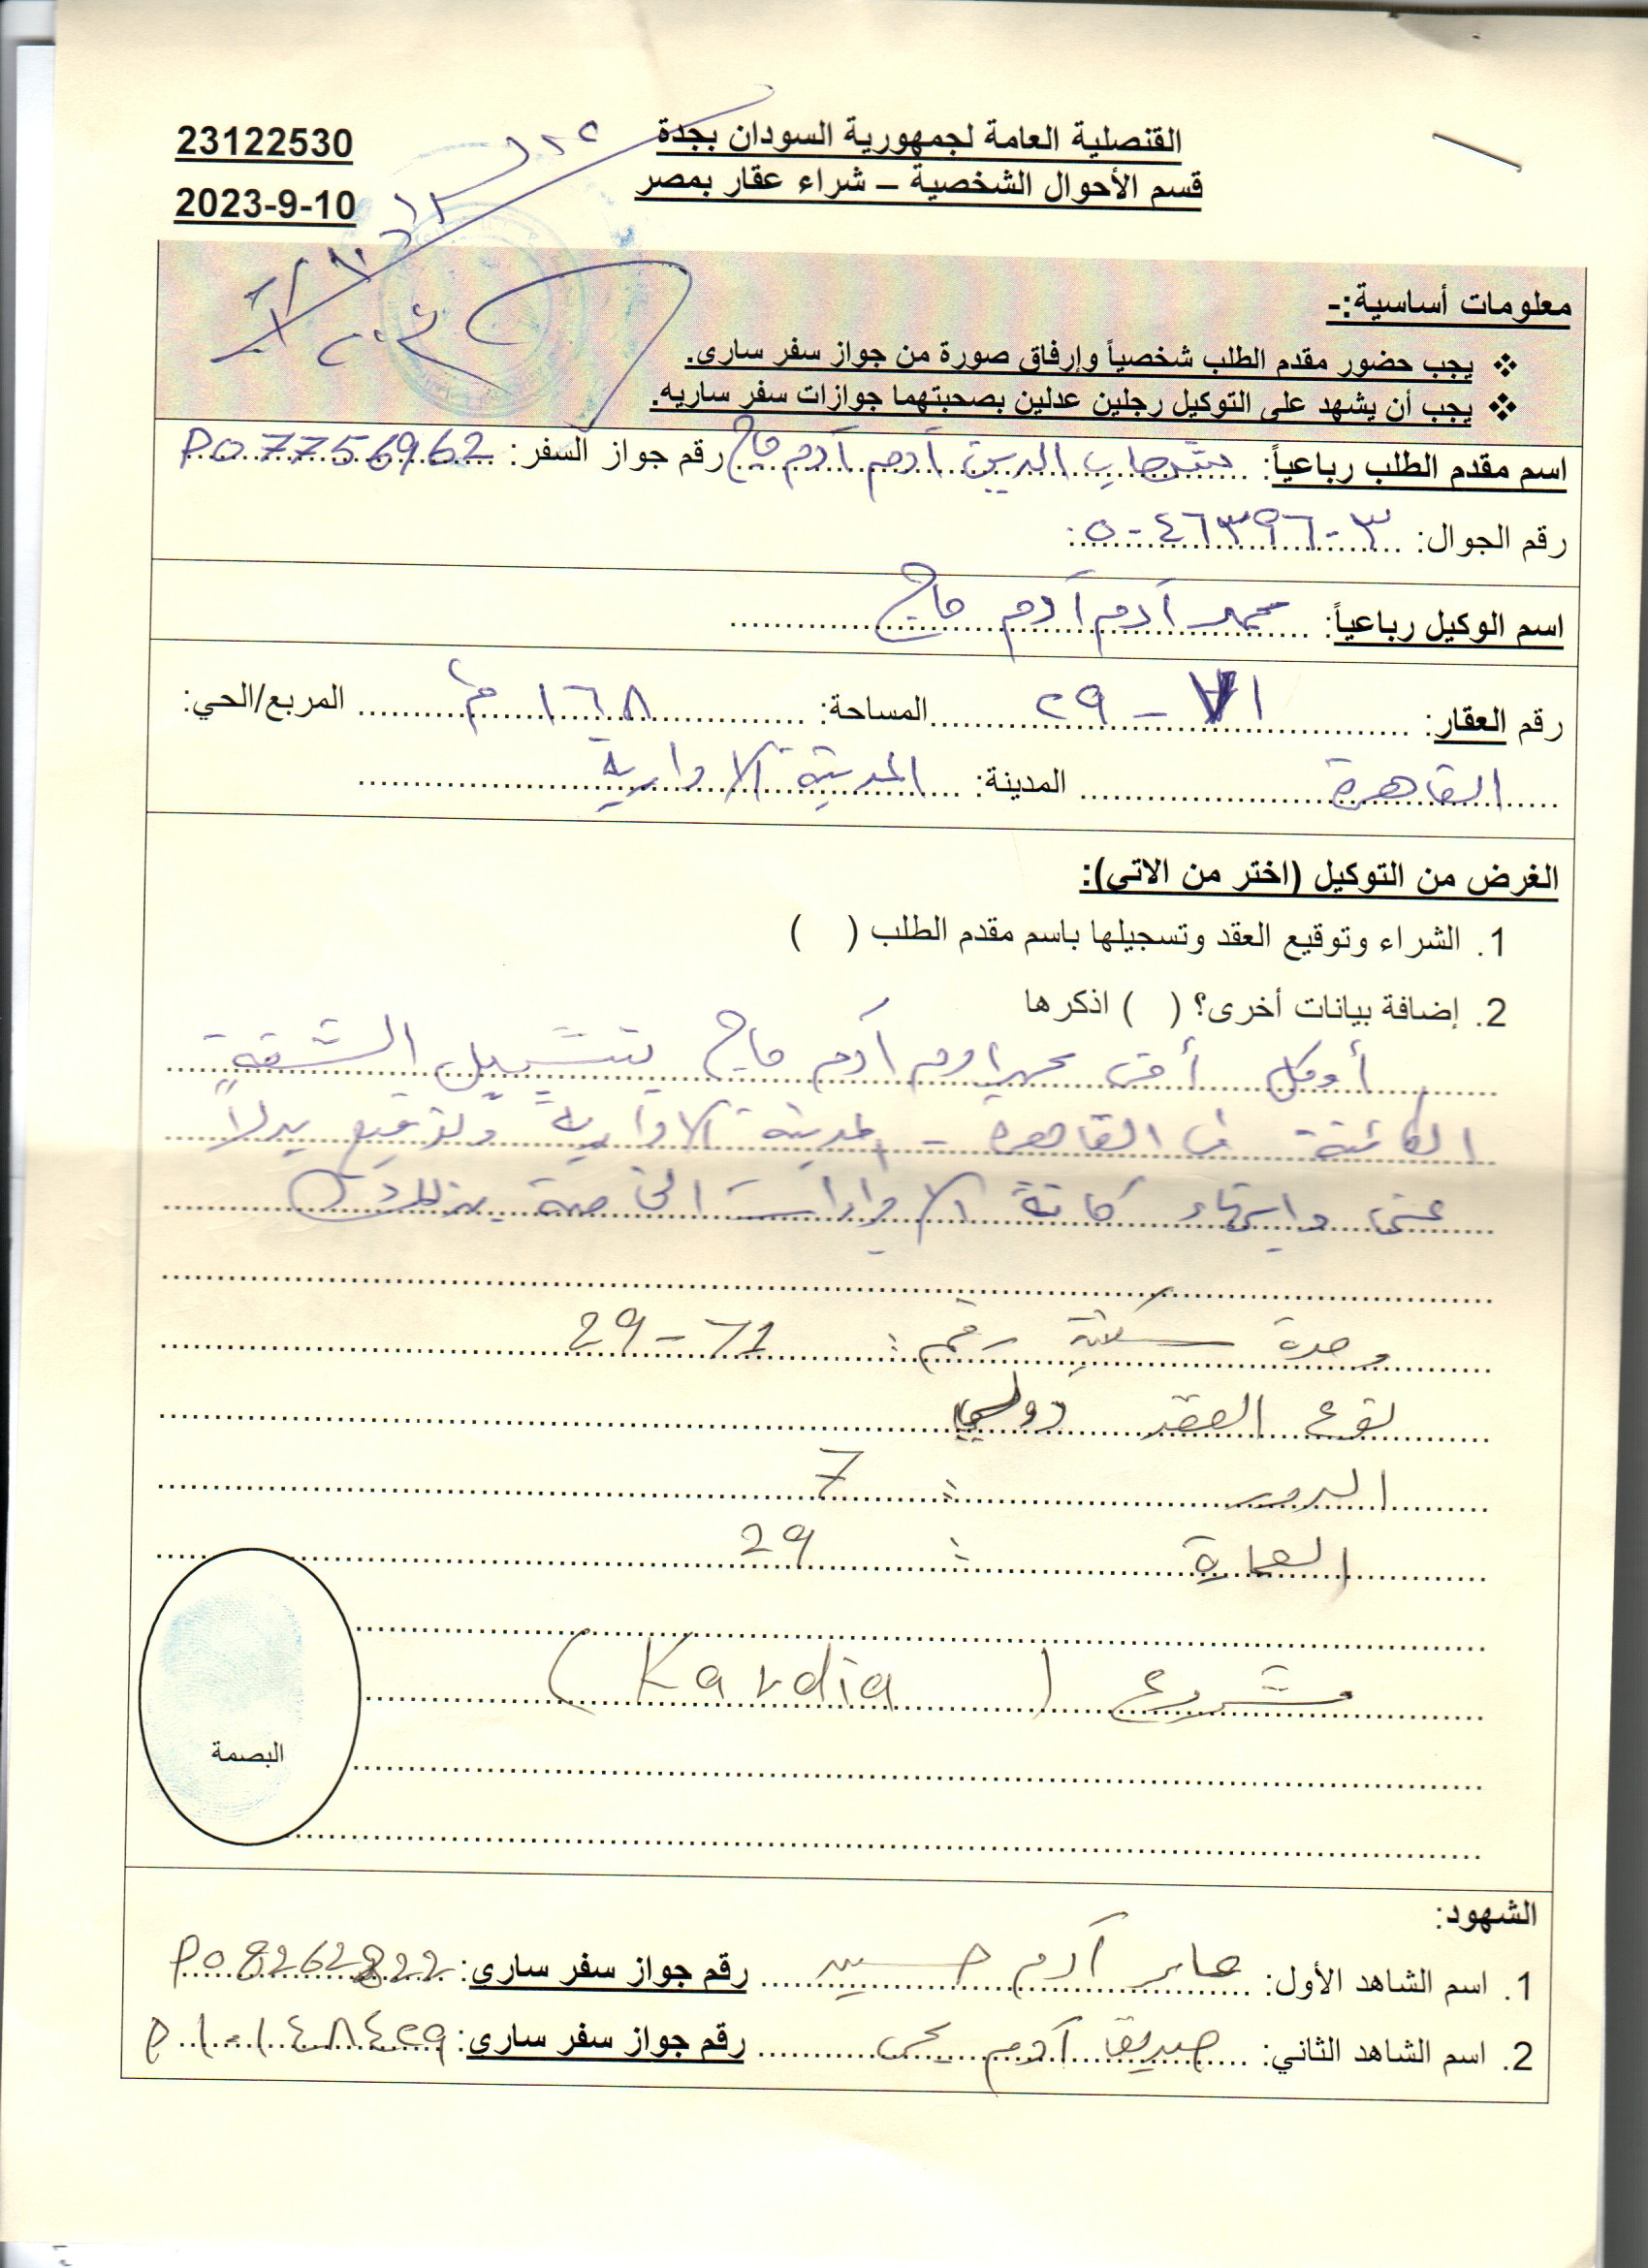 القنصلية العامة لجمهورية السودان بجدة
23122530
قسم الأحوال الشخصية – شراء عقار بمصر
2023-9-10
معلومات أساسية:-
❖ يجب حضور مقدم الطلب شخصياً وإرفاق صورة من جواز سفر سارى.
❖ يجب أن يشهد على التوكيل رجلين عدلين بصحبتهما جوازات سفر ساريه.
اسم مقدم الطلب رباعياً: شهاب الدين آدم آدم حاج رقم جواز السفر: P07756962
رقم الجوال: ٠٥٠٤٦٣٩٦٠٣
اسم الوكيل رباعياً: محمد آدم آدم حاج
رقم العقار: ٧١ - ٢٩ المساحة: ١٦٨ م٢ المربع/الحي:
القاهرة المدينة: المدينة الادارية
الغرض من التوكيل (اختر من الاتى):
1. الشراء وتوقيع العقد وتسجيلها باسم مقدم الطلب ( )
2. إضافة بيانات أخرى؟ ( ) اذكرها
أوكل أخي محمد ادم آدم حاج بتسجيل الشقة
الكائنة في القاهرة - المدينة الادارية وتوقيع بدلاً
عني وانهاء كافة الاجراءات الخاصة بذلك
وحدة سكنية رقم : 29 - 71
نوع العقد دولي
الدور : 7
العمارة : 29
مشروع ( Kardia )
البصمة
الشهود:
1. اسم الشاهد الأول: جابر آدم حسين رقم جواز سفر سارى: P08262822
2. اسم الشاهد الثاني: صديق آدم يحي رقم جواز سفر سارى: P١٠١٤٨٤٢٩